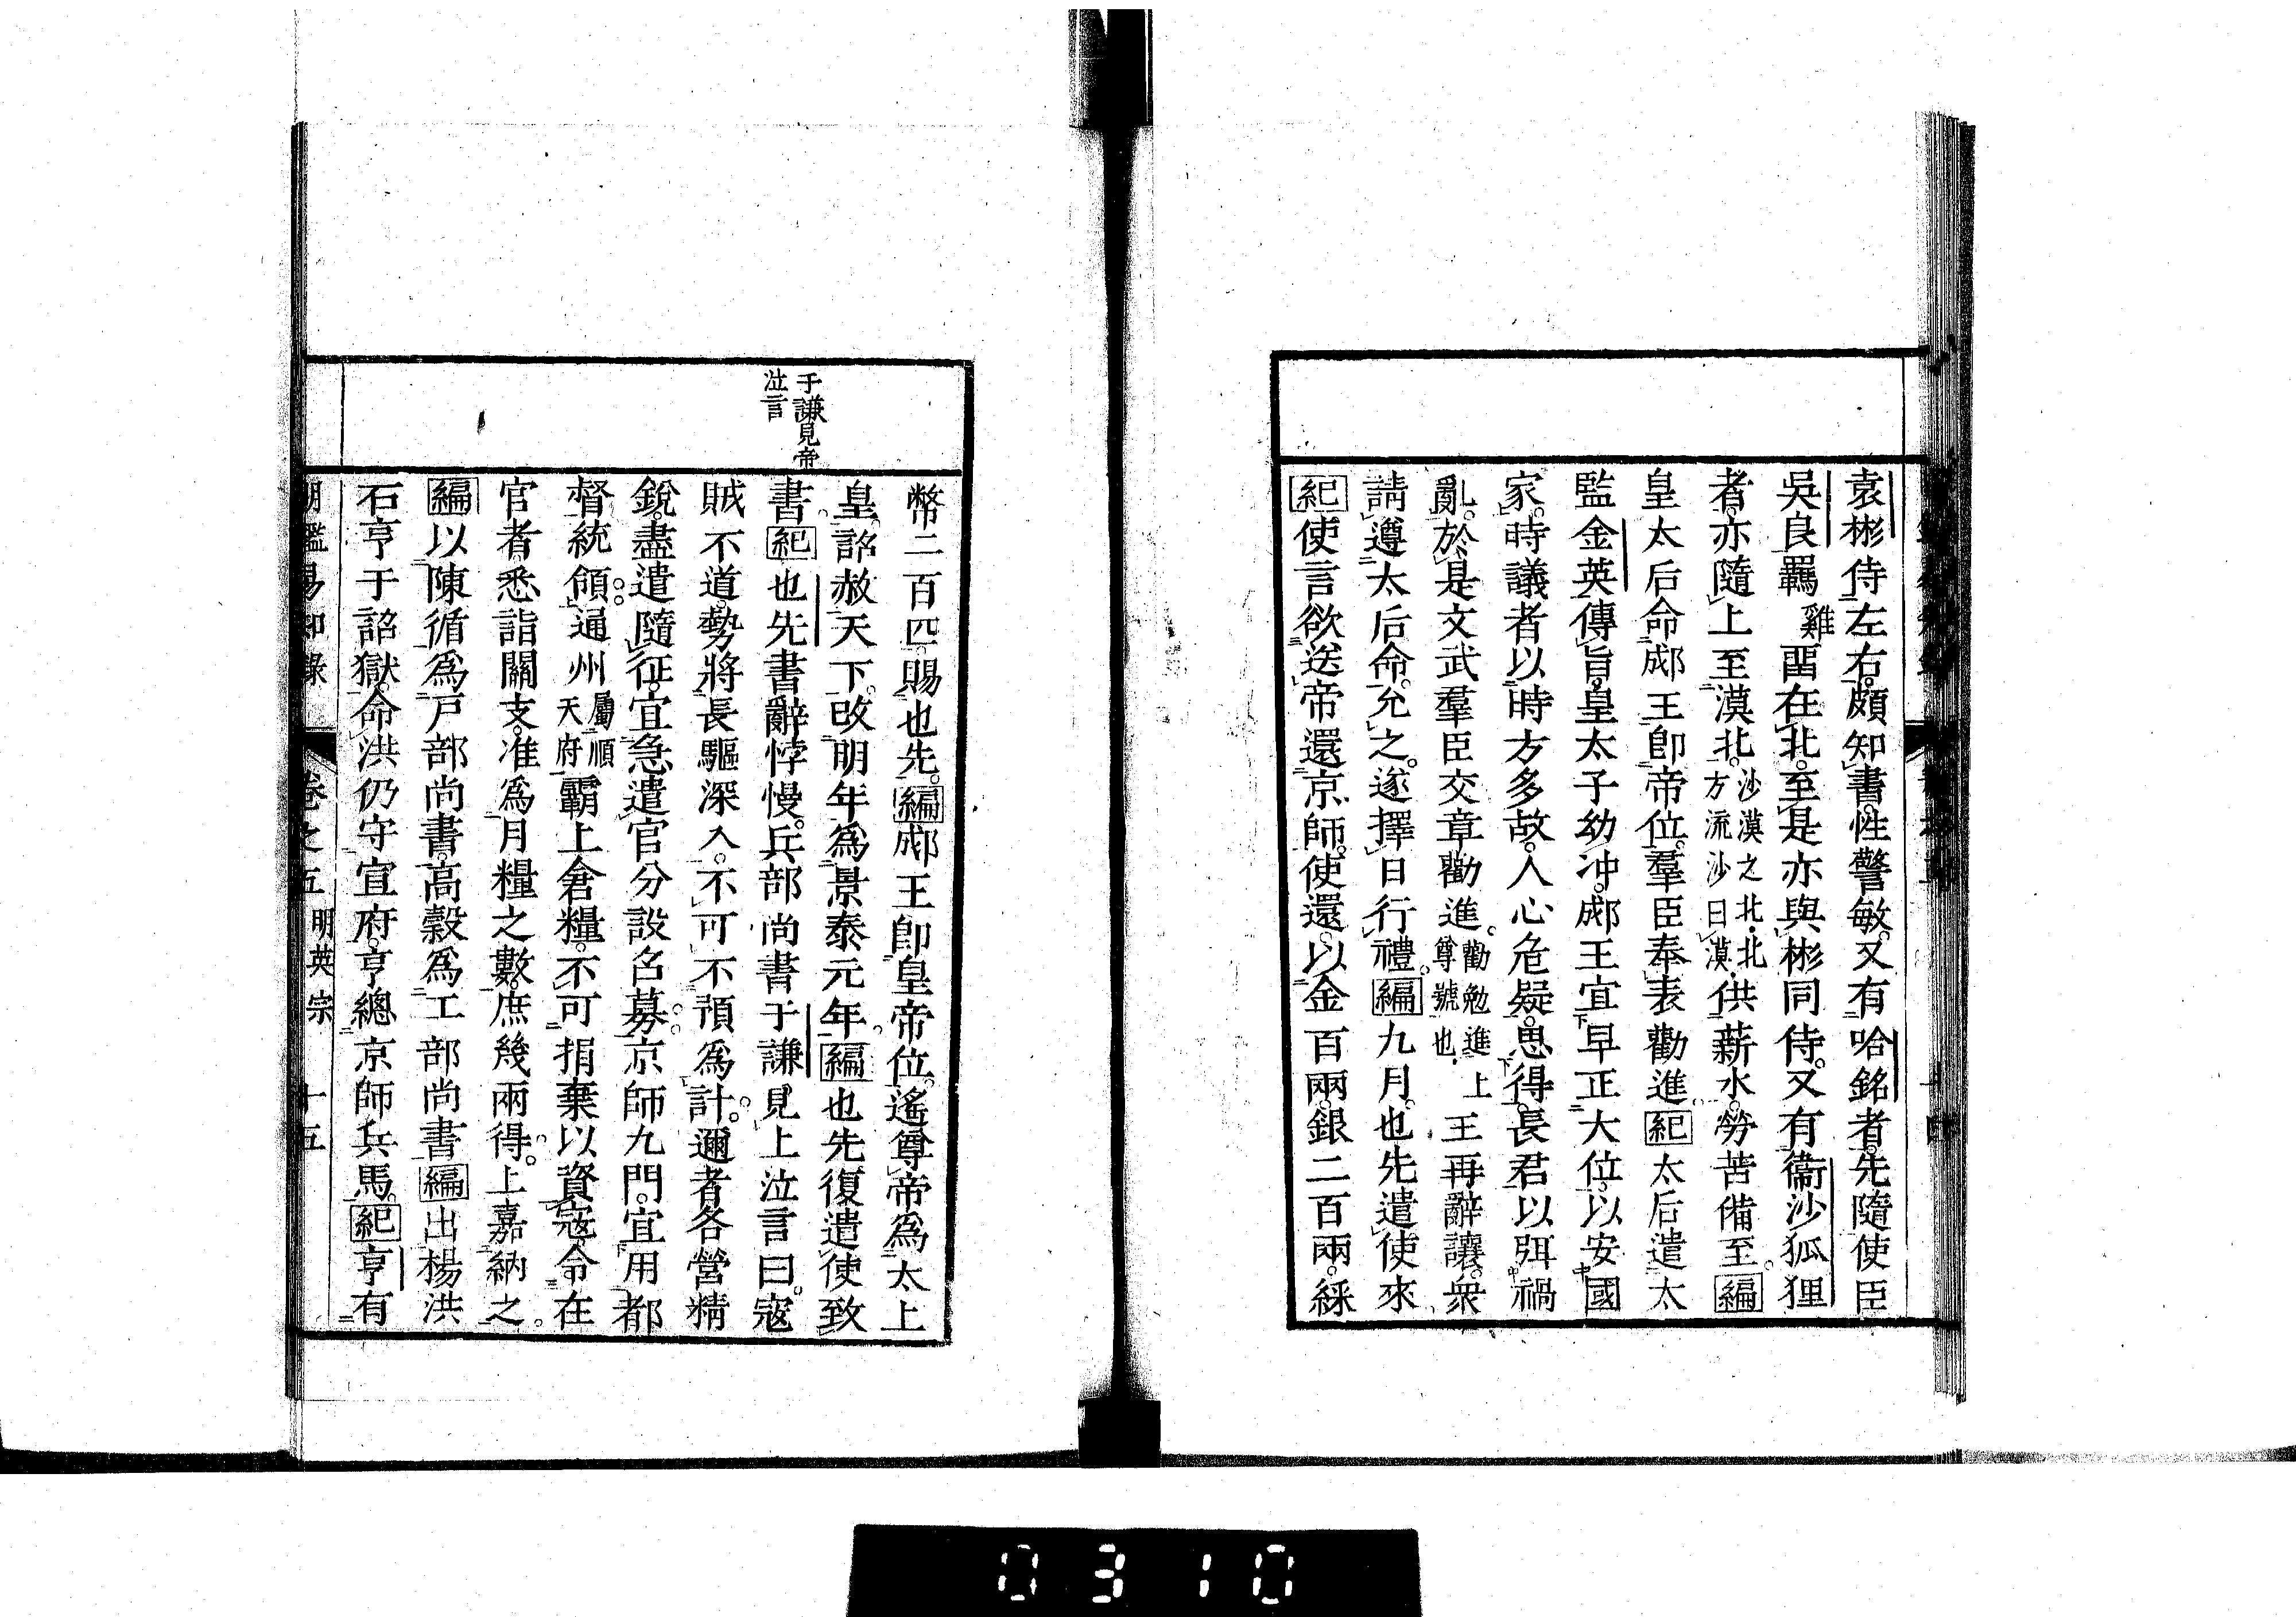 袁彬侍左右。頗知書。性警敏。又有哈銘者。先隨使臣
吳良羈雞畱在北。至是亦與彬同侍。又有衞沙狐狸
者。亦隨上至漠北。沙漠之北。北方流沙曰漠。供薪水。勞苦備至。編
皇太后命郕王卽帝位。羣臣奉表勸進。紀太后遣太
監金英傳旨。皇太子幼冲。郕王宜早正大位。以安國
家。時議者以時方多故。人心危疑。思得長君以弭禍
亂。於是文武羣臣交章勸進。勸勉進上尊號也。王再辭讓。衆
請遵太后命。允之。遂擇日行禮。編九月。也先遣使來
紀使言欲送帝還京師。使還。以金百兩。銀二百兩。綵
幣二百匹。賜也先。編郕王卽皇帝位。遙尊帝爲太上
皇。詔赦天下。改明年爲景泰元年。編也先復遣使致
書。紀也先書辭悖慢。兵部尚書于謙見上泣言曰。寇
于謙見帝
泣言
賊不道。勢將長驅深入。不可不預爲計。邇者各營精
銳。盡遣隨征。宜急遣官分設召募。京師九門。宜用都
督統領。通州屬順天府霸上倉糧。不可捐棄以資寇。令在
官者悉詣關支。准爲月糧之數。庶幾兩得。上嘉納之。
編以陳循爲戸部尚書。高穀爲工部尚書。編出楊洪
石亨于詔獄。命洪仍守宣府。亨總京師兵馬。紀亨有
明鑑易知錄 卷之五 明英宗 十五
0310